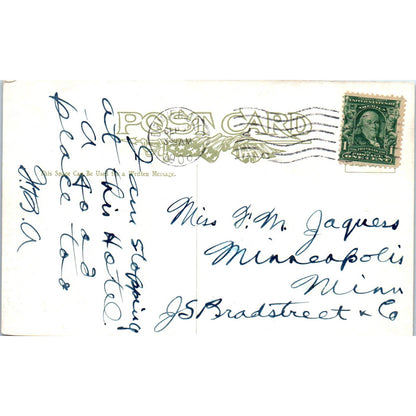 POST CARD
This Space Can Be Used for a Written Message.
I am stopping
at this Hotel.
a good
place too
Miss F. M. Jaquess
Minneapolis
Minn
J S Bradstreet & Co
1